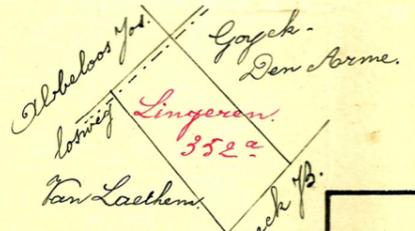 Abbeloos Jos.
Goyck-
Den Arme.
losweg
Lingeren.
352a
Van Laethem.